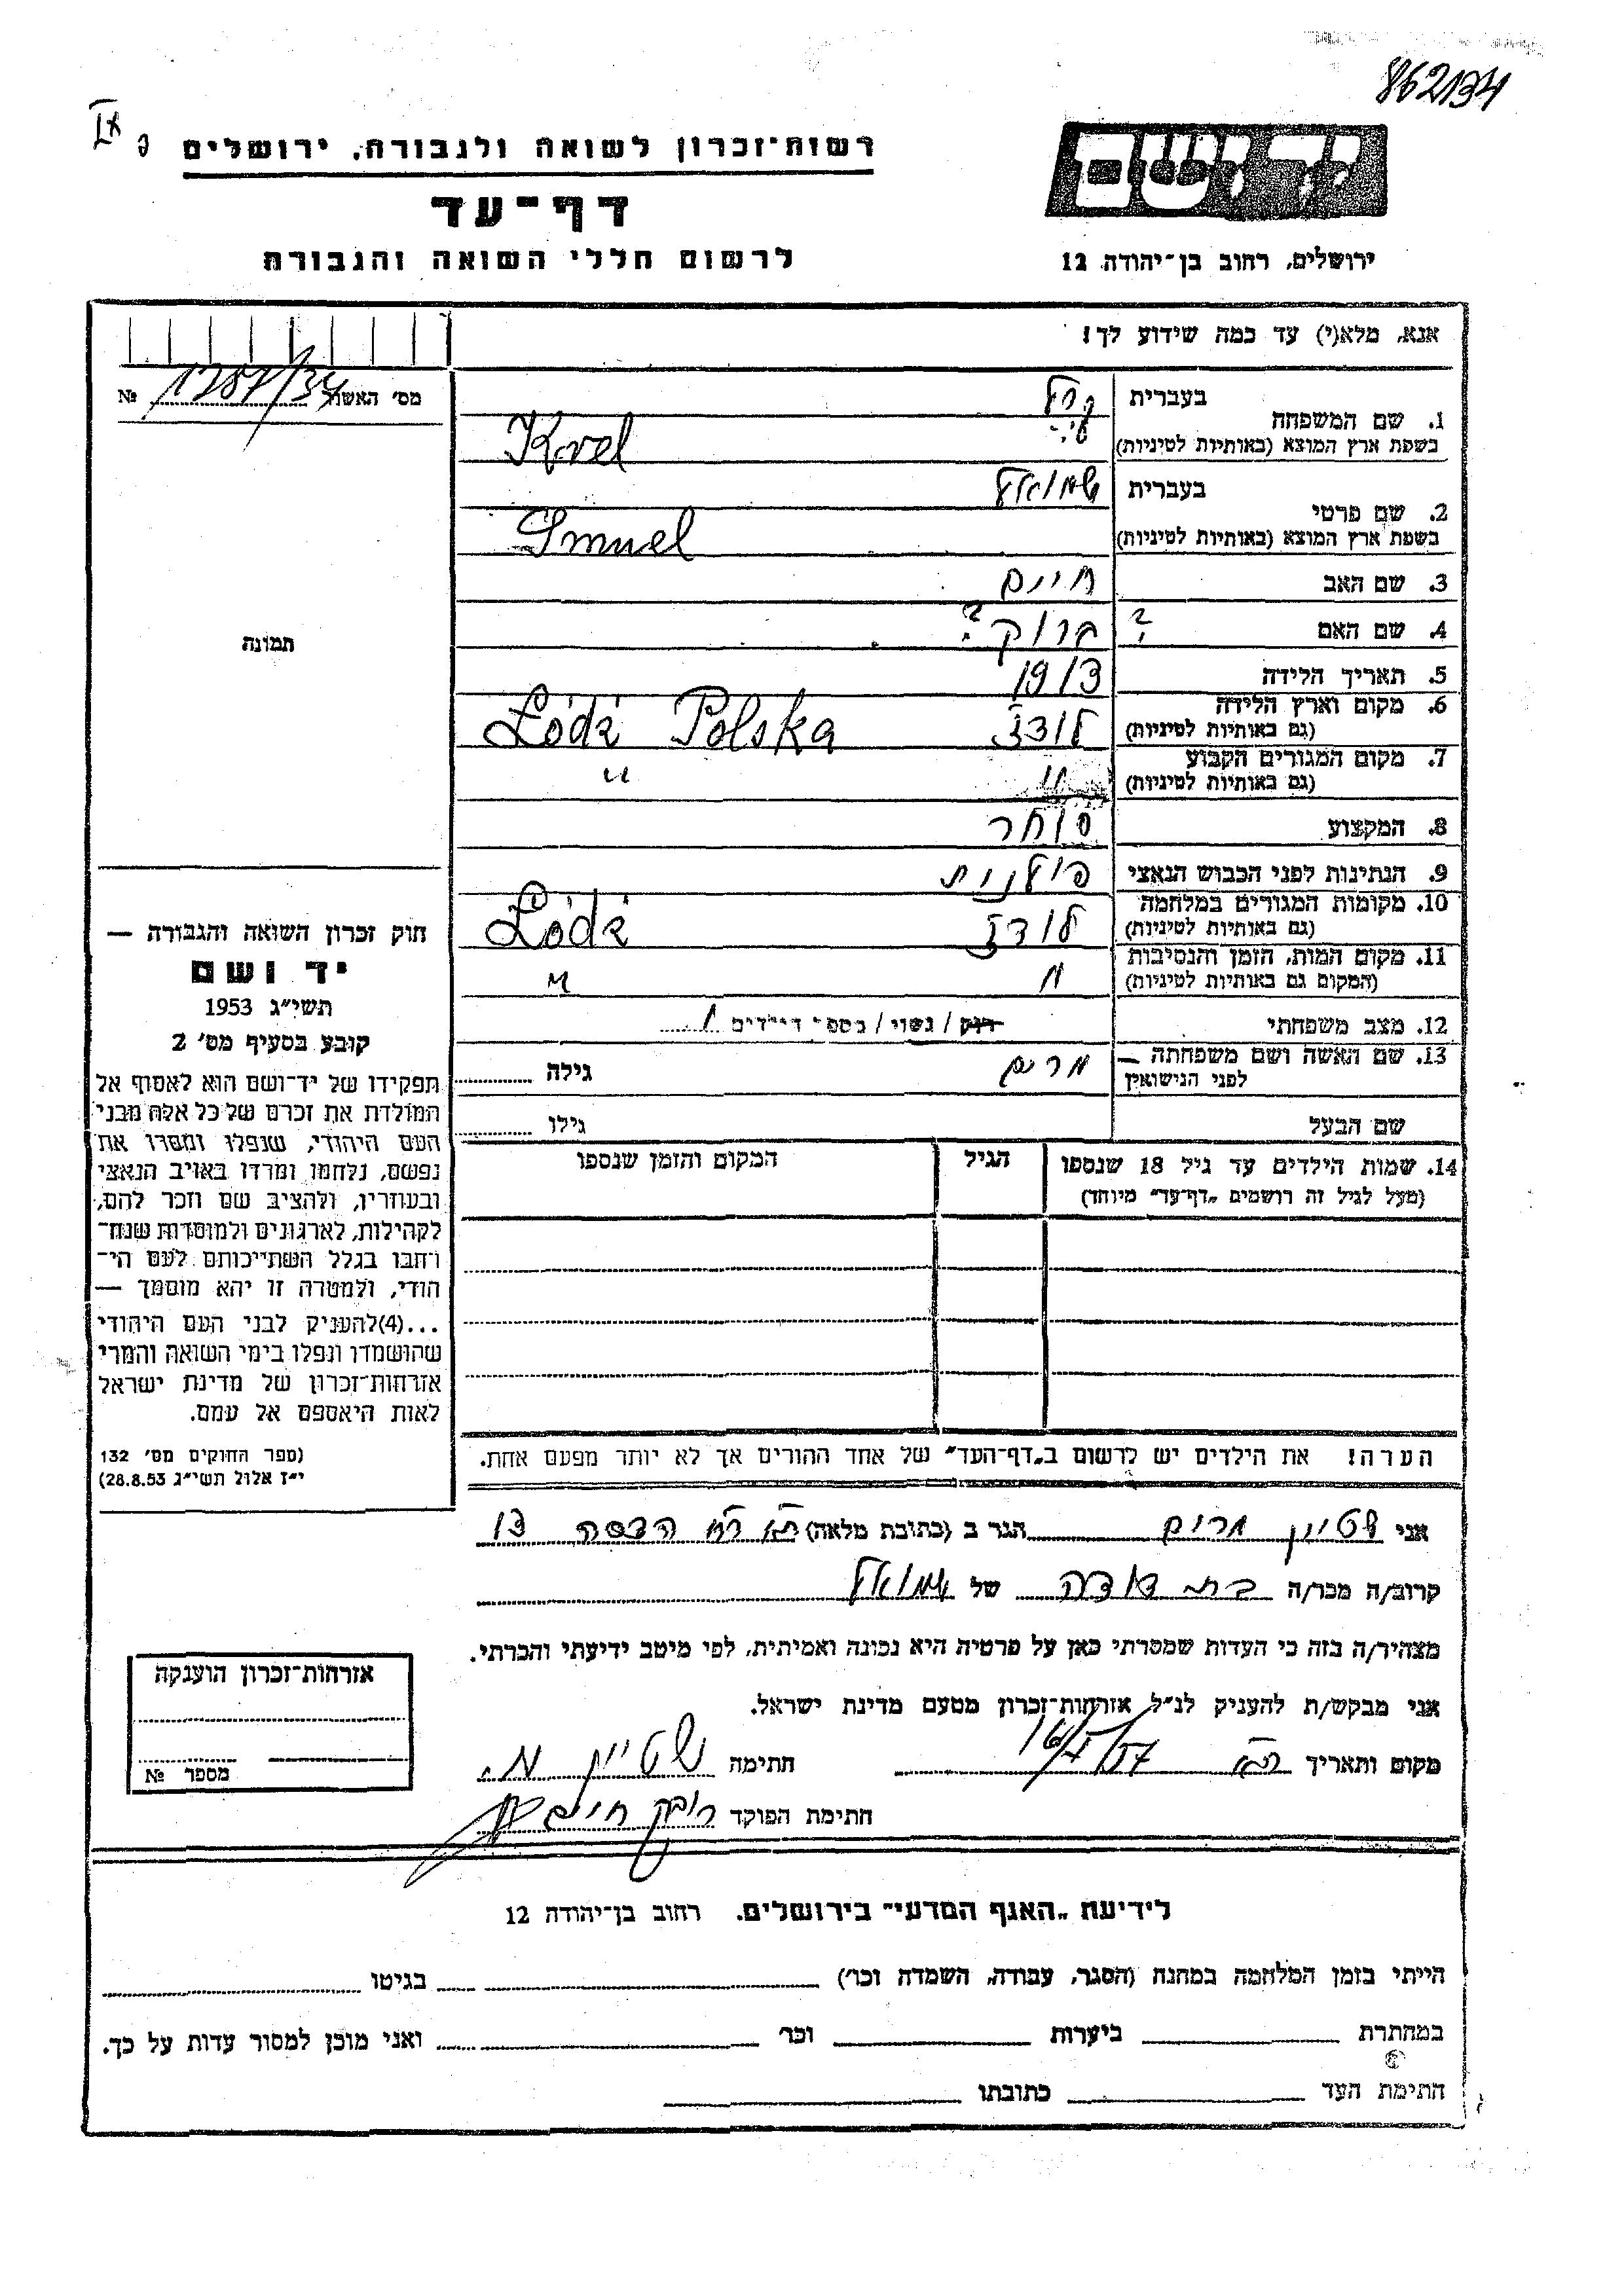 862134
רשות-זכרון לשואה ולגבורה, ירושלים
דף-עד
לרשום חללי השואה והגבורה
יד ושם
ירושלים, רחוב בן-יהודה 12
אנא, מלא(י) עד כמה שידוע לך!
מס' האשה 1287/34 №
תמונה
1. שם המשפחה בעברית
בשפת ארץ המוצא (באותיות לטיניות) Krel
2. שם פרטי בעברית שמואל
בשפת ארץ המוצא (באותיות לטיניות) Smuel
3. שם האב חיים
4. שם האם ? ברוק ?
5. תאריך הלידה 1913
6. מקום וארץ הלידה לודז Łódź Polska
(גם באותיות לטיניות)
7. מקום המגורים הקבוע " "
(גם באותיות לטיניות)
8. המקצוע סוחר
9. הנתינות לפני הכבוש הנאצי פולנית
10. מקומות המגורים במלחמה לודז Łódź
(גם באותיות לטיניות)
11. מקום המות, הזמן והנסיבות " "
(המקום גם באותיות לטיניות)
12. מצב משפחתי רוק / נשוי / מספר הילדים 1
13. שם האשה ושם משפחתה — מרים גילה
לפני הנישואין
שם הבעל גילו
14. שמות הילדים עד גיל 18 שנספו הגיל המקום והזמן שנספו
(מעל לגיל זה רושמים "דף-עד" מיוחד)
הערה! את הילדים יש לרשום ב"דף-העד" של אחד ההורים אך לא יותר מפעם אחת.
חוק זכרון השואה והגבורה —
יד ושם
תשי"ג 1953
קובע בסעיף מס' 2
תפקידו של יד-ושם הוא לאסוף אל
המולדת את זכרם של כל אלה מבני
העם היהודי, שנפלו ומסרו את
נפשם, נלחמו ומרדו באויב הנאצי
ובעוזריו, ולהציב שם וזכר להם,
לקהילות, לארגונים ולמוסדות שנח-
רחבו בגלל השתייכותם לעם הי-
הודי, ולמטרה זו יהא מוסמך —
...(4)להעניק לבני העם היהודי
שהושמדו ונפלו בימי השואה והמרי
אזרחות-זכרון של מדינת ישראל
לאות היאספם אל עמם.
(ספר החוקים מס' 132
י"ז אלול תשי"ג 28.8.53)
אני שטיין מרים הגר ב (כתובת מלאה) הדסה 13
קרוב/ה מכר/ה בת דודה של שמואל
מצהיר/ה בזה כי העדות שמסרתי כאן על פרטיה היא נכונה ואמיתית, לפי מיטב ידיעתי והכרתי.
אני מבקש/ת להעניק לנ"ל אזרחות-זכרון מטעם מדינת ישראל.
מקום ותאריך חתימה שטיין מ.
חתימת הפוקד
אזרחות-זכרון הוענקה
מספר №
לידיעת "האגף המדעי" בירושלים, רחוב בן-יהודה 12
הייתי בזמן המלחמה במחנה (הסגר, עבודה, השמדה וכו') בגיטו
במחתרת ביערות וכו' ואני מוכן למסור עדות על כך.
חתימת העד כתובתו